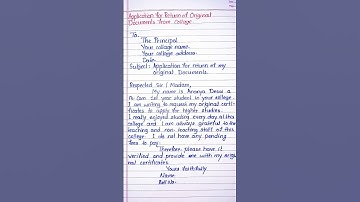 Application for Return of Original
Documents from college.
To,
The Principal
Your collage name.
Your collage address.
Date.
Subject: Application for return of my
original Documents.
Respected Sir / Madam,
My name is Ananya Desai a
B.Com 1st year student in your college.
I am writing to request my original certi-
ficates to apply for higher studies.
I really enjoyed studing every day at this
college and I am always grateful to the
teaching and non-teaching staff of this
college. I do not have any pending
fees to pay.
Therefore please have it
verified and provide me with my origi
nal certificates.
Yours faithfully
Name
Roll No.